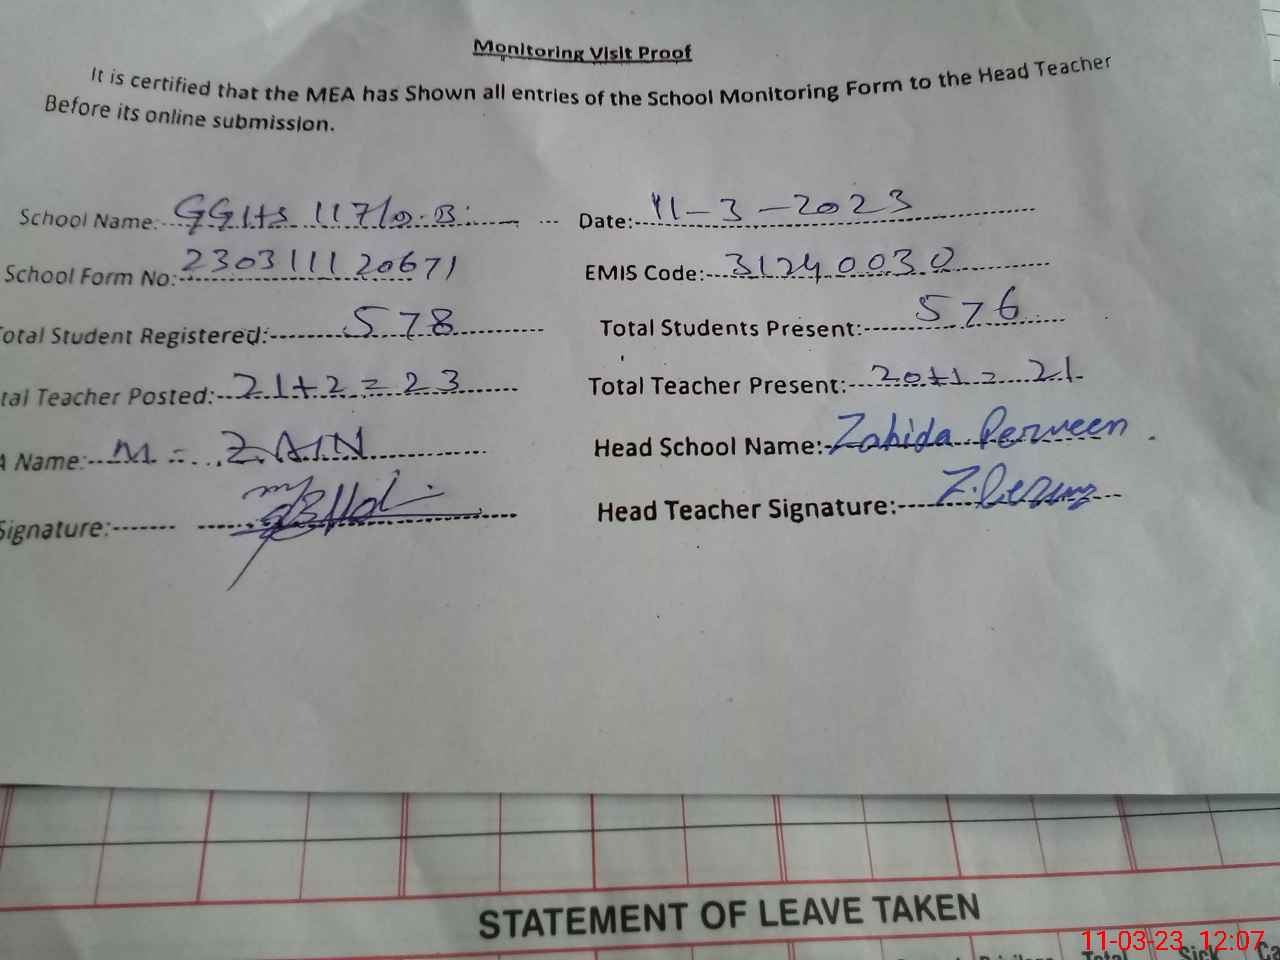 Monitoring Visit Proof
It is certified that the MEA has Shown all entries of the School Monitoring Form to the Head Teacher
Before its online submission.
School Name: GGHS 117/0.B. Date: 11-3-2023
School Form No: 230311120671 EMIS Code: 31240030
otal Student Registered: 578 Total Students Present: 576
tal Teacher Posted: 21+2=23 Total Teacher Present: 20+1=21
A Name: M. ZAIN Head School Name: Zahida Perveen
Signature: Head Teacher Signature:
STATEMENT OF LEAVE TAKEN
Total Sick Ca
11-03-23 12:07